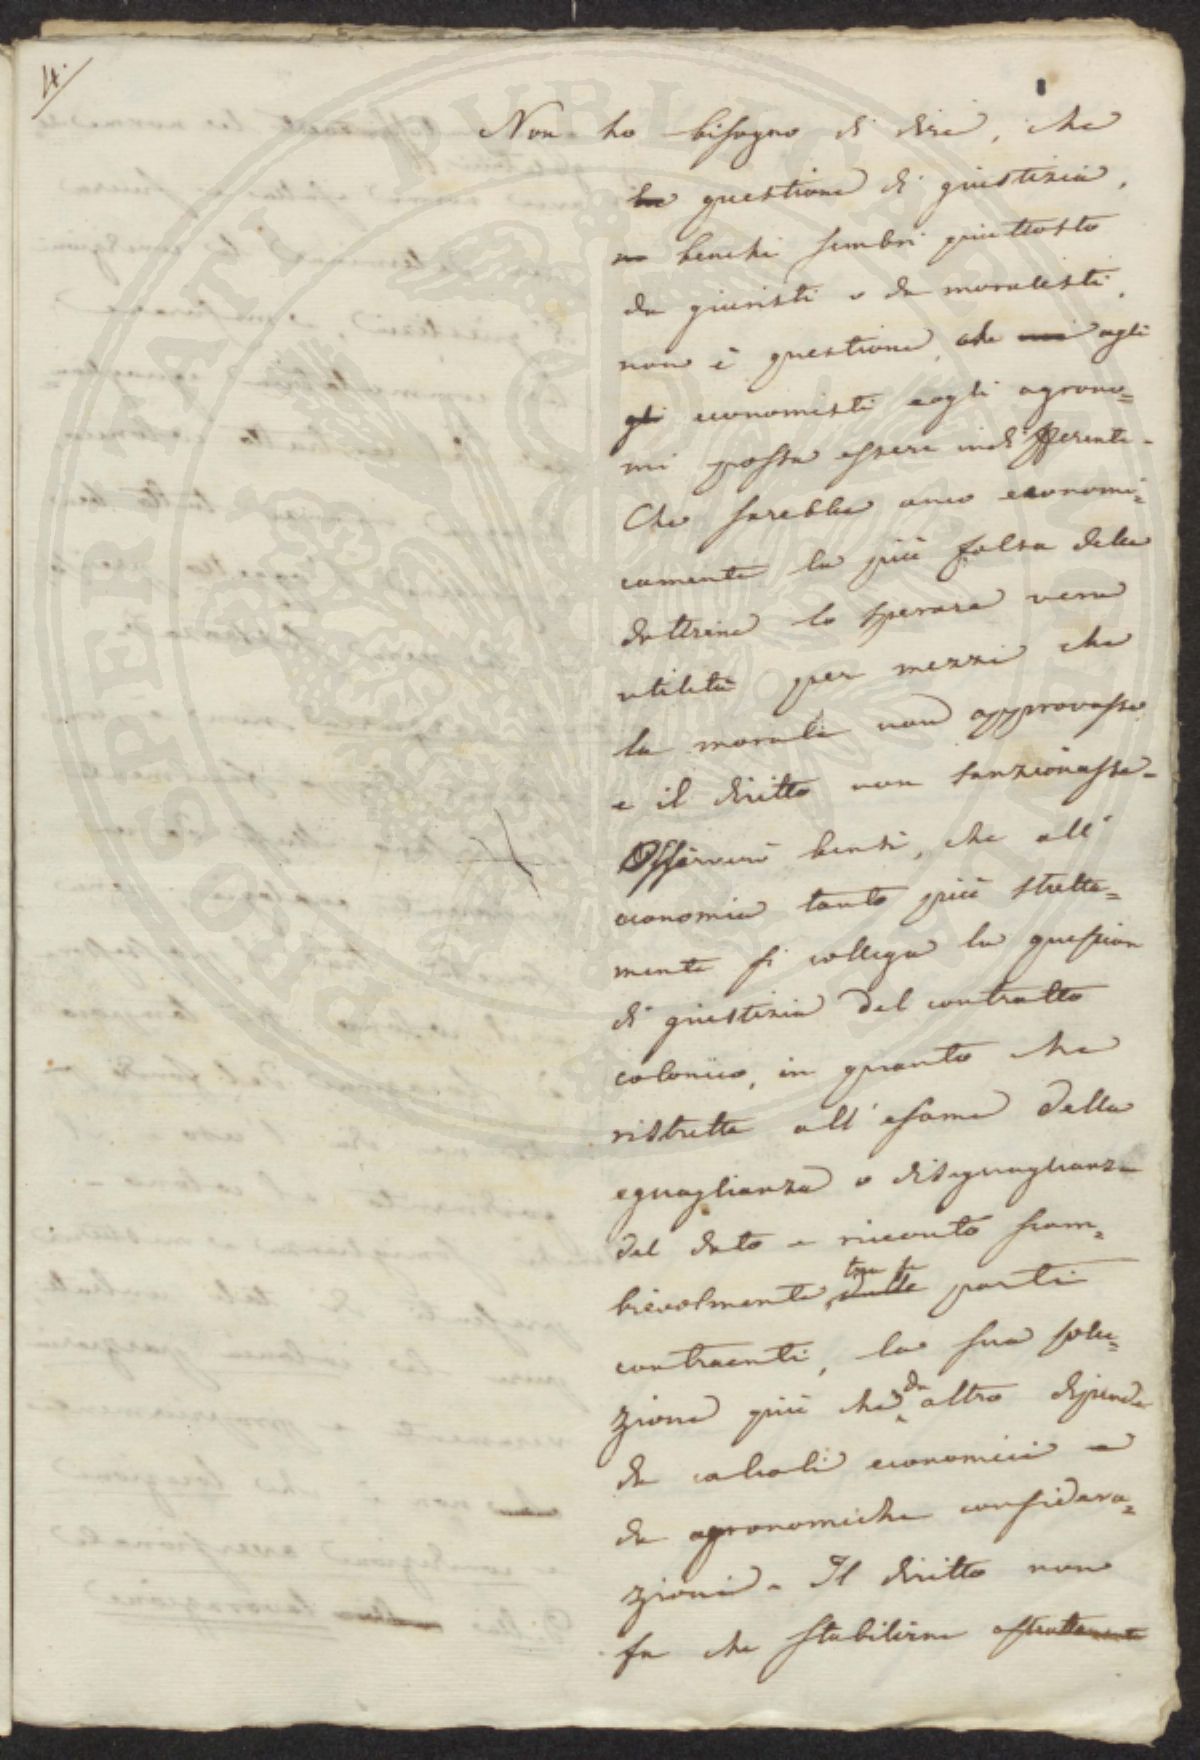 4.
Non ho bisogno di dire, che
la questione di giustizia,
benchè sembri piuttosto
da giuristi o da moralisti,
non è questione, che agli
gli economisti e agli agrono=
mi possa essere indifferente.
Che sarebbe anco economi=
camente la più falsa delle
dottrine lo sperare vera
utilità per mezzi che
la morale non approvasse
e il diritto non sanzionasse.
Osserverò bensì, che all'
economia tanto più stretta=
mente si collega la question
di giustizia del contratto
colonico, in quanto che
ristretta all'esame della
eguaglianza o diseguaglianza
del dato e ricevuto scam=
bievolmente tra le dalle parti
contraenti, la sua solu=
zione più che da altro dipende
da calcoli economici e
da agronomiche considera=
zioni. Il diritto non
fa che stabilirne astrattamente
PROSPERITATI PUBLICAE